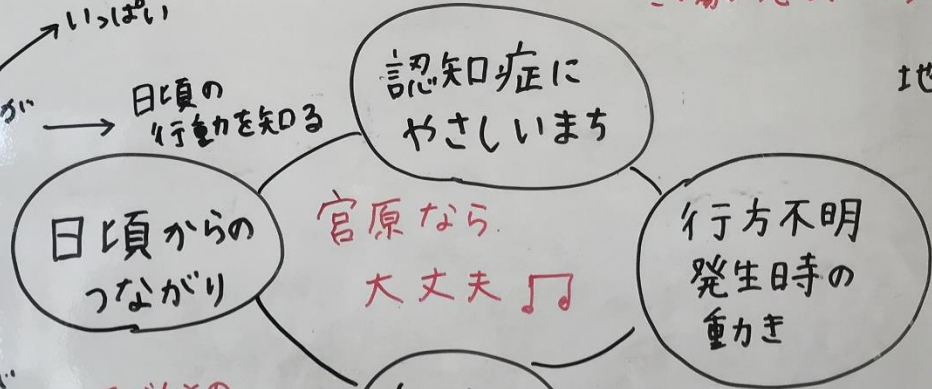 いっぱい
が
日頃の
行動を知る
認知症に
やさしいまち
地
日頃からの
つながり
宮原なら
大丈夫
行方不明
発生時の
動き